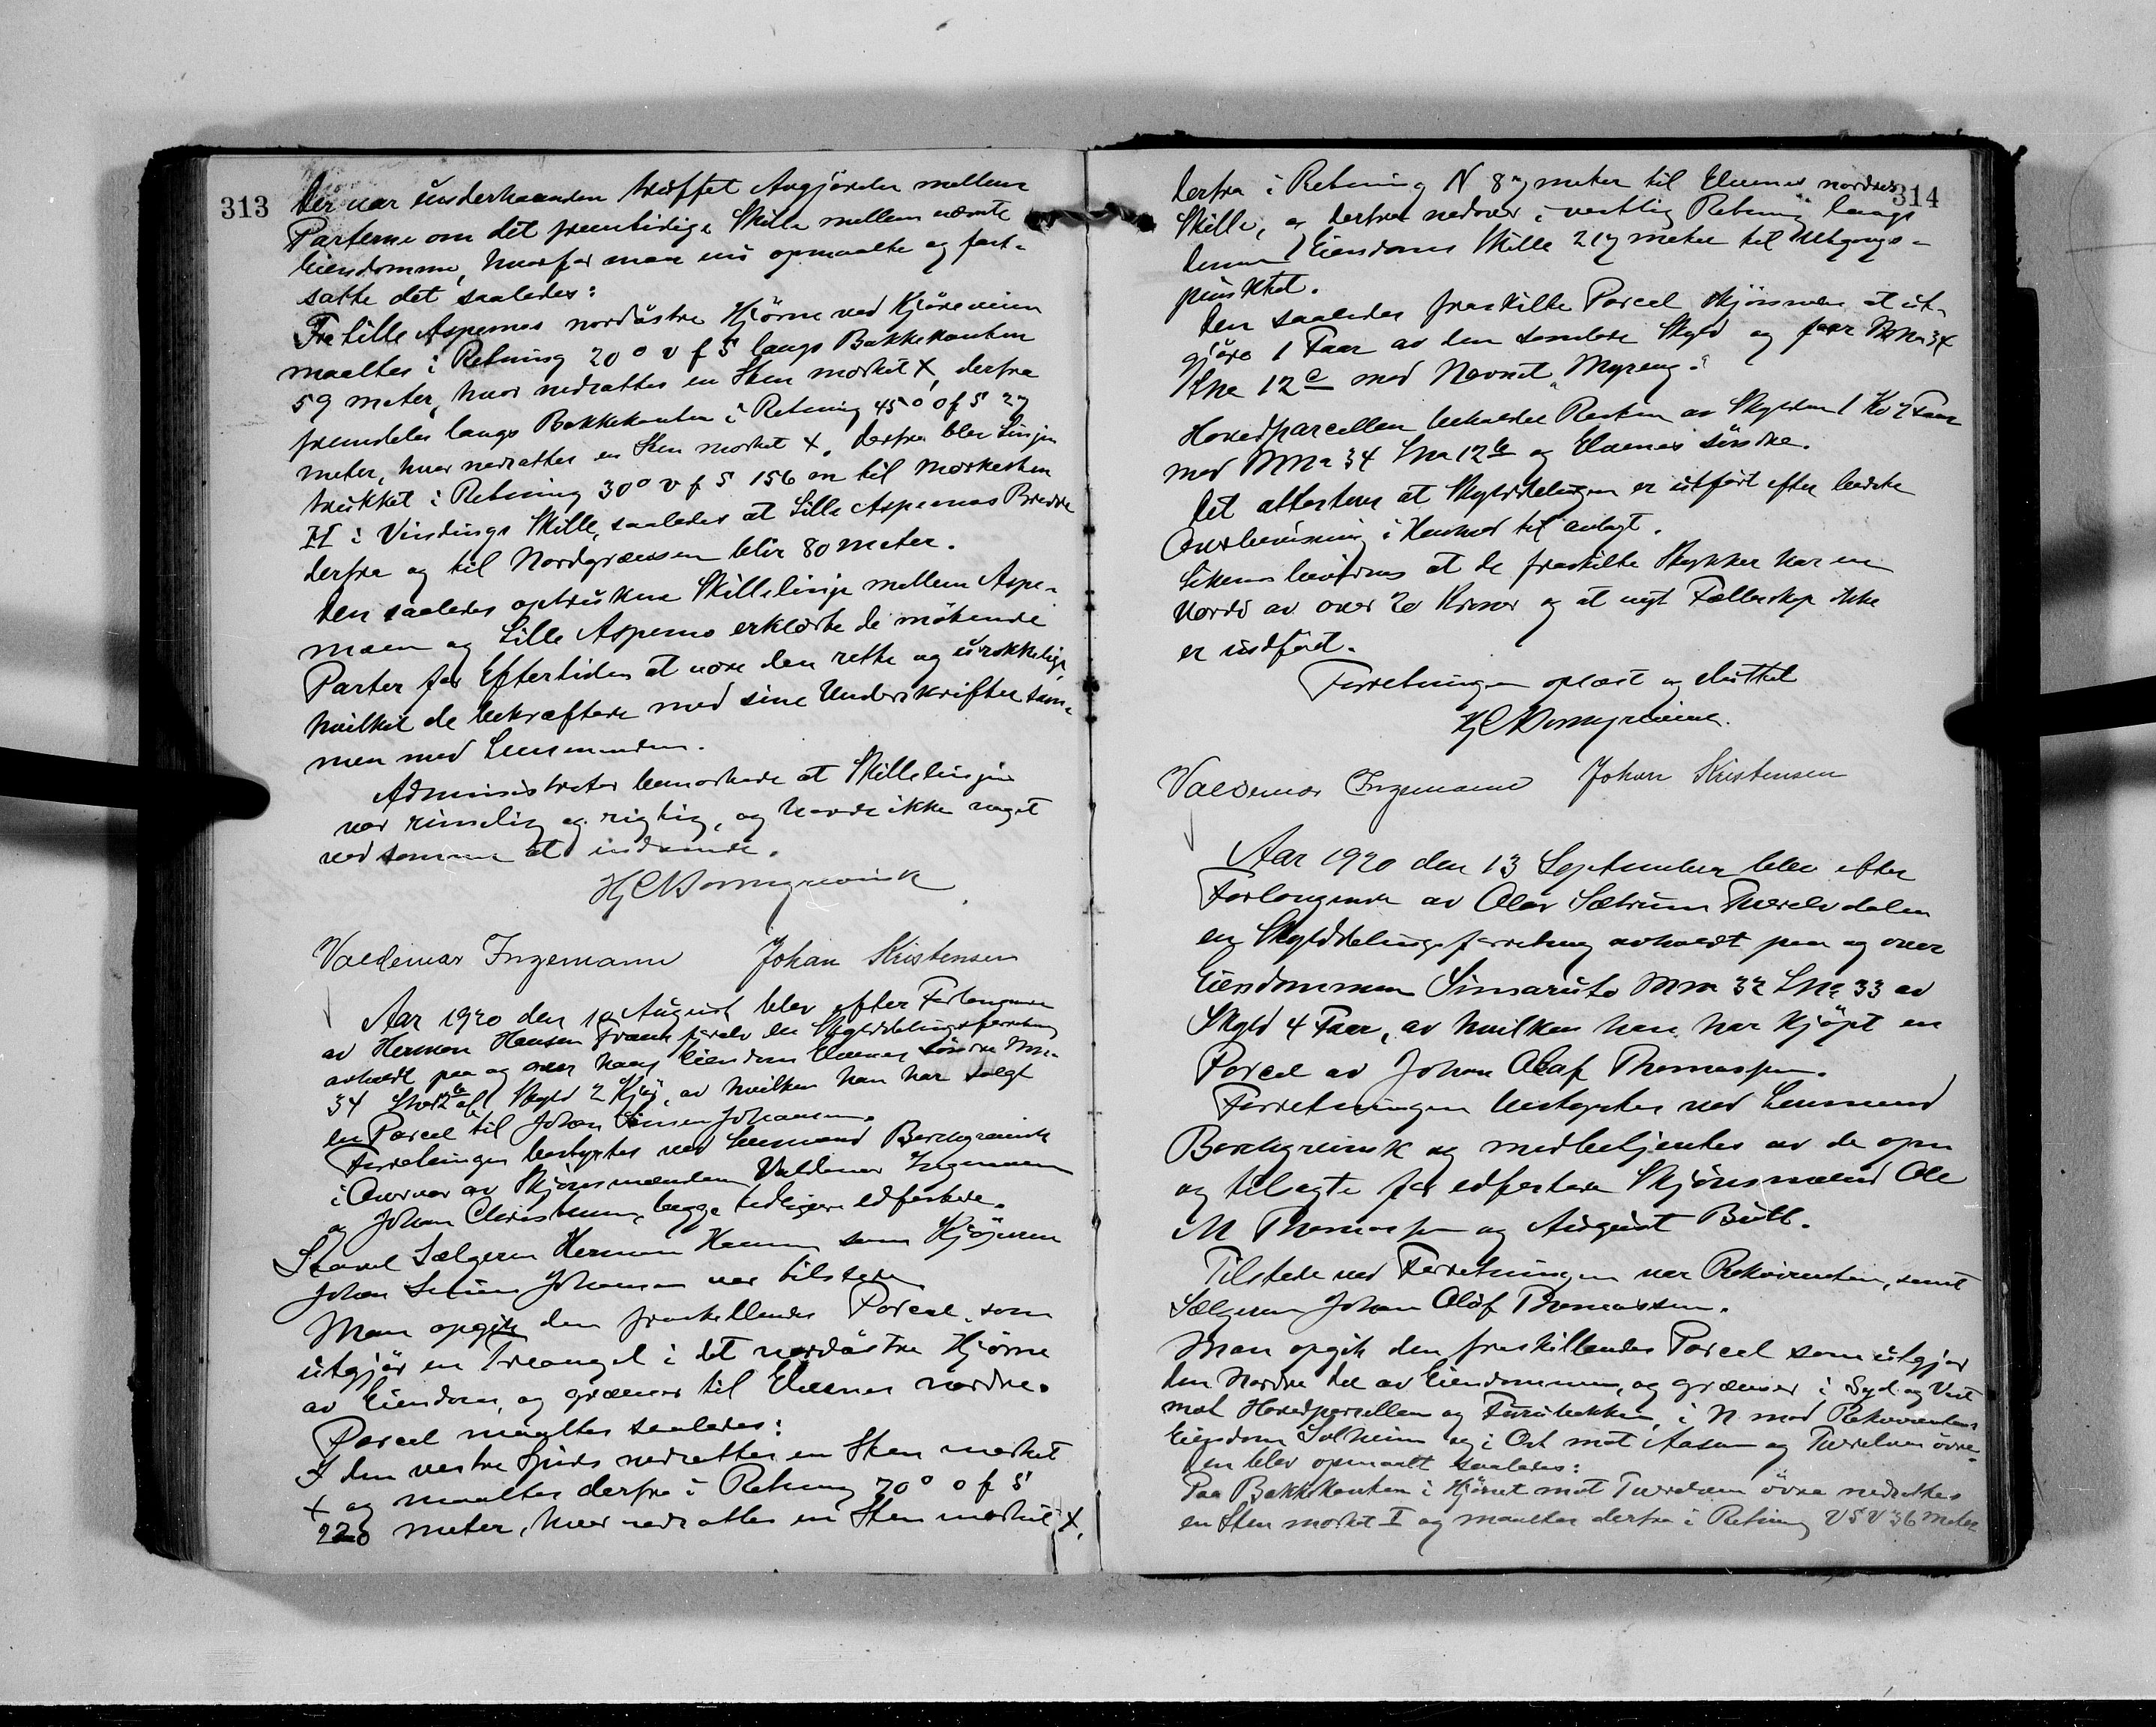 313
Der var underhaanden truffet Avgjörelse mellem
Parterne om det fremtidige Skille mellem nævnte
Eiendomme, hvorfor man nu opmaalte og fast-
satte det saaledes:
Fra Lille Aspemos nordöstre Hjörne ved Kjöreveien
maaltes i Retning 20° v f S langs Bakkekanten
59 meter, hvor nedsattes en Sten mærket X, derfra
fremdeles langs Bakkekanten i Retning 45° o f S 27
meter, hvor nedsattes en Sten mærket X. Derfra blev Linjen
trukket i Retning 30° v f S 156 m til Mærkesten
II i Vindings Skille, saaledes at Lille Aspemos Bredde
derfra og til Nordgrænsen blir 80 meter.
Den saaledes optrukne Skillelinje mellem Aspe-
moen og Lille Aspemo erklærte de mötende
Parter for Eftertiden at være den rette og urokkelige
hvilket de bekræfter med sine Underskrifter sam-
men med Lensmanden.
Administrator bemærkede at Skillelinjen
var rimelig og rigtig, og havde ikke noget
ved samme at indvende.
Hj C Borchgrevink
Valdemar Ingemann Johan Kristensen
Aar 1920 den August blev efter Forlangende
av Herman Hansen en Skylddelingsforretning
avholdt paa og over hans Eiendom Elvenes söndre Mno
34 Lno 12 b af Skyld 2 Kjör, av hvilken han har solgt
en Parcel til Johan Simon Johansen.
Forretningen bestyrtes ved Lensmand Borchgrevink
i Overvær av Skjönsmændene Valdemar Ingemann
og Johan Christensen, begge tidligere edfæstede.
Saavel Sælgeren Herman Hansen som Kjöperen
Johan Simon Johansen var tilstede
Man opgik den fraskillendes Parcel, som
utgjör en Treangel i det nordöstre Hjörne
av Eiendom, og grænser til Elvenes nordre.
Parcel maaltes saaledes:
I den vestre Spids nedsattes en Sten mærket
X og maaltes derfra i Retning 70° o f S
220 meter, hvor nedsattes en Sten mærket X.
314
derfra i Retning N 87 meter til Elvenes nordres
Skille, og derfra nedover i vestlig Retning langs
denne Eiendoms Skille 217 meter til Utgangs-
punktet.
Den saaledes fraskilte Parcel skjönnedes at ut-
gjöre 1 Faar av den samlede Skyld og faar Mno 34
Lno 12 c med Navnet "Myreng".
Hovedparcellen beholder Resten av Skylden 1 Ko 7 Faar
med Mno 34 Lno 12 b og Elvenes söndre.
Det attesteres at Skylddelingen er utfört efter bedste
Overbevisning i Henhold til avlagt.
Likesaa bevidnes at de fraskilte Stykker har en
Værdi av over 20 Kroner og at nyt Fællesskap ikke
er indfört.
Forretningen oplæst og sluttet
Hj C Borchgrevink
Valdemar Ingemann Johan Kristensen
Aar 1920 den 13 September blev efter
Forlangende av Olav Sætrum Tverelvdalen
en Skylddelingsforretning avholdt paa og over
Eiendommen Mno 32 Lno 33 av
Skyld 4 Faar, av hvilken han har kjöpt en
Parcel av Johan Olaf Thomassen.
Forretningen bestyrtes ved Lensmand
Borchgrevink og medbetjentes av de opn
og tilagte för edfæstede Skjönsmænd Ole
M Thomassen og August Bull.
Tilstede ved Forretningen var Rekvirenten, samt
Sælgeren Johan Olaf Thomassen.
Man opgik den fraskillendes Parcel som utgjör
den Nordre Del av Eiendommen, og grænser i Syd og Vest
mot Hovedparcellen og Furubakken, i N mod Rekvirentens
Eiendom Solheim og i Ost mot Aasen og Tverelven övre.
Den blev opmaalt saaledes:
Paa Bakkekanten i Hjörnet mot Tverelven övre nedsattes
en Sten mærket I og maaltes derfra i Retning VSV 36 meter